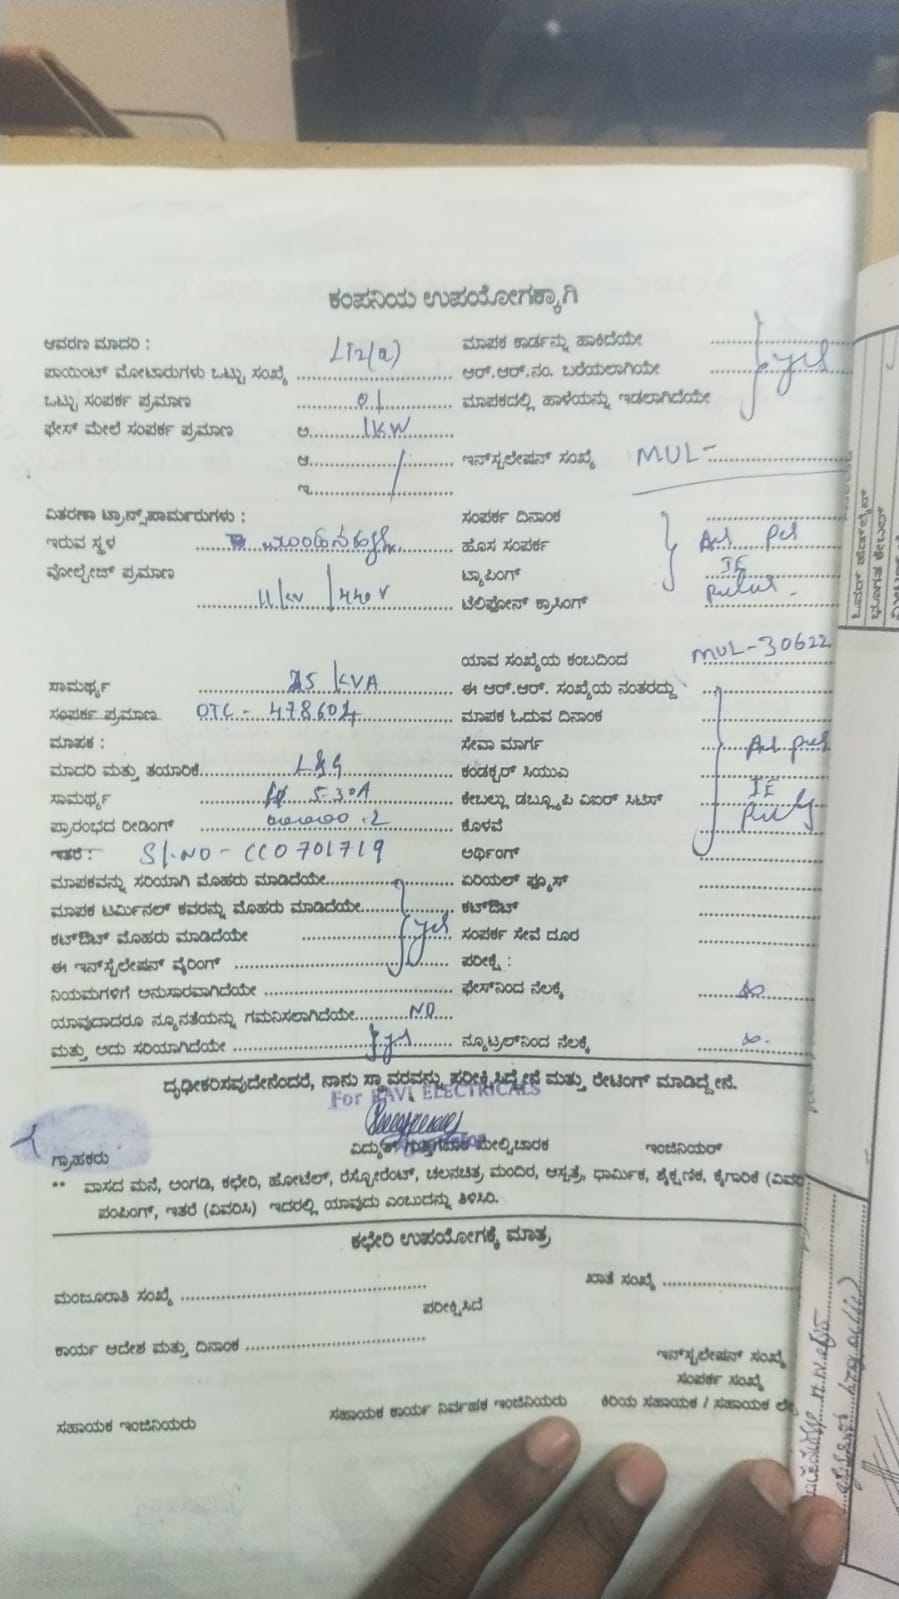 ಕಂಪನಿಯ ಉಪಯೋಗಕ್ಕಾಗಿ
ಆವರಣ ಮಾದರಿ : LT2(a) ಮಾಪಕ ಕಾರ್ಡನ್ನು ಹಾಕಿದೆಯೇ
ಪಾಯಿಂಟ್ ಮೋಟಾರುಗಳು ಒಟ್ಟು ಸಂಖ್ಯೆ ಆರ್.ಆರ್.ನಂ. ಬರೆಯಲಾಗಿಯೇ yes
ಒಟ್ಟು ಸಂಪರ್ಕ ಪ್ರಮಾಣ 01 ಮಾಪಕದಲ್ಲಿ ಹಾಳೆಯನ್ನು ಇಡಲಾಗಿದೆಯೇ
ಫೇಸ್ ಮೇಲೆ ಸಂಪರ್ಕ ಪ್ರಮಾಣ ಅ. 1KW
ಆ. ಇನ್‌ಸ್ಟಲೇಷನ್ ಸಂಖ್ಯೆ MUL-
ಇ.
ವಿತರಣಾ ಟ್ರಾನ್ಸ್‌ಫಾರ್ಮರುಗಳು : ಸಂಪರ್ಕ ದಿನಾಂಕ
ಇರುವ ಸ್ಥಳ ಹೊಸ ಸಂಪರ್ಕ
ವೋಲ್ಟೇಜ್ ಪ್ರಮಾಣ ಟ್ಯಾಪಿಂಗ್ IE
11/KV / 440V ಟೆಲಿಫೋನ್ ಕ್ರಾಸಿಂಗ್
ಯಾವ ಸಂಖ್ಯೆಯ ಕಂಬದಿಂದ MUL-30622
ಸಾಮರ್ಥ್ಯ 25 KVA ಈ ಆರ್.ಆರ್. ಸಂಖ್ಯೆಯ ನಂತರದ್ದು
ಸಂಪರ್ಕ ಪ್ರಮಾಣ ಮಾಪಕ ಓದುವ ದಿನಾಂಕ
ಮಾಪಕ : ಸೇವಾ ಮಾರ್ಗ
ಮಾದರಿ ಮತ್ತು ತಯಾರಿಕೆ L&G ಕಂಡಕ್ಟರ್ ಸಿಯುವಿ
ಸಾಮರ್ಥ್ಯ 5-30A ಕೇಬಲ್ಲು ಡಬ್ಲ್ಯೂಪಿ ವಿಐರ್ ಸಿಟಿಸ್ IE
ಪ್ರಾರಂಭದ ರೀಡಿಂಗ್ ಕೊಳವೆ
ಇತರೆ : Sl.NO - CC0701719 ಅರ್ಥಿಂಗ್
ಮಾಪಕವನ್ನು ಸರಿಯಾಗಿ ಮೊಹರು ಮಾಡಿದೆಯೇ ಏರಿಯಲ್ ಫ್ಯೂಸ್
ಮಾಪಕ ಟರ್ಮಿನಲ್ ಕವರನ್ನು ಮೊಹರು ಮಾಡಿದೆಯೇ ಕಟ್‌ಔಟ್
ಕಟ್‌ಔಟ್ ಮೊಹರು ಮಾಡಿದೆಯೇ yes ಸಂಪರ್ಕ ಸೇವೆ ದೂರ
ಈ ಇನ್‌ಸ್ಟಲೇಷನ್ ವೈರಿಂಗ್ ಪರೀಕ್ಷೆ :
ನಿಯಮಗಳಿಗೆ ಅನುಸಾರವಾಗಿದೆಯೇ ಫೇಸ್‌ನಿಂದ ನೆಲಕ್ಕೆ
ಯಾವುದಾದರೂ ನ್ಯೂನತೆಯನ್ನು ಗಮನಿಸಲಾಗಿದೆಯೇ NO
ಮತ್ತು ಅದು ಸರಿಯಾಗಿದೆಯೇ yes ನ್ಯೂಟ್ರಲ್‌ನಿಂದ ನೆಲಕ್ಕೆ
ದೃಢೀಕರಿಸವುದೇನೆಂದರೆ, ನಾನು ಸ್ಥಾವರವನ್ನು ಪರೀಕ್ಷಿಸಿದ್ದೇನೆ ಮತ್ತು ರೇಟಿಂಗ್ ಮಾಡಿದ್ದೇನೆ.
For RAVI ELECTRICALS
ಗ್ರಾಹಕರು ವಿದ್ಯುತ್ ಗುತ್ತಿಗೆದಾರ ಮೇಲ್ವಿಚಾರಕ ಇಂಜಿನಿಯರ್
** ವಾಸದ ಮನೆ, ಅಂಗಡಿ, ಕಛೇರಿ, ಹೋಟೆಲ್, ರೆಸ್ಟೋರೆಂಟ್, ಚಲನಚಿತ್ರ ಮಂದಿರ, ಆಸ್ಪತ್ರೆ, ಧಾರ್ಮಿಕ, ಶೈಕ್ಷಣಿಕ, ಕೈಗಾರಿಕೆ
ಪಂಪಿಂಗ್, ಇತರೆ (ವಿವರಿಸಿ) ಇದರಲ್ಲಿ ಯಾವುದು ಎಂಬುದನ್ನು ತಿಳಿಸಿರಿ.
ಕಛೇರಿ ಉಪಯೋಗಕ್ಕೆ ಮಾತ್ರ
ಮಂಜೂರಾತಿ ಸಂಖ್ಯೆ ಖಾತೆ ಸಂಖ್ಯೆ
ಪರೀಕ್ಷಿಸಿದೆ
ಕಾರ್ಯ ಆದೇಶ ಮತ್ತು ದಿನಾಂಕ
ಇನ್‌ಸ್ಟಲೇಷನ್ ಸಂಖ್ಯೆ
ಸಂಪರ್ಕ ಸಂಖ್ಯೆ
ಸಹಾಯಕ ಇಂಜಿನಿಯರು ಸಹಾಯಕ ಕಾರ್ಯ ನಿರ್ವಾಹಕ ಇಂಜಿನಿಯರು ಕಿರಿಯ ಸಹಾಯಕ / ಸಹಾಯಕ